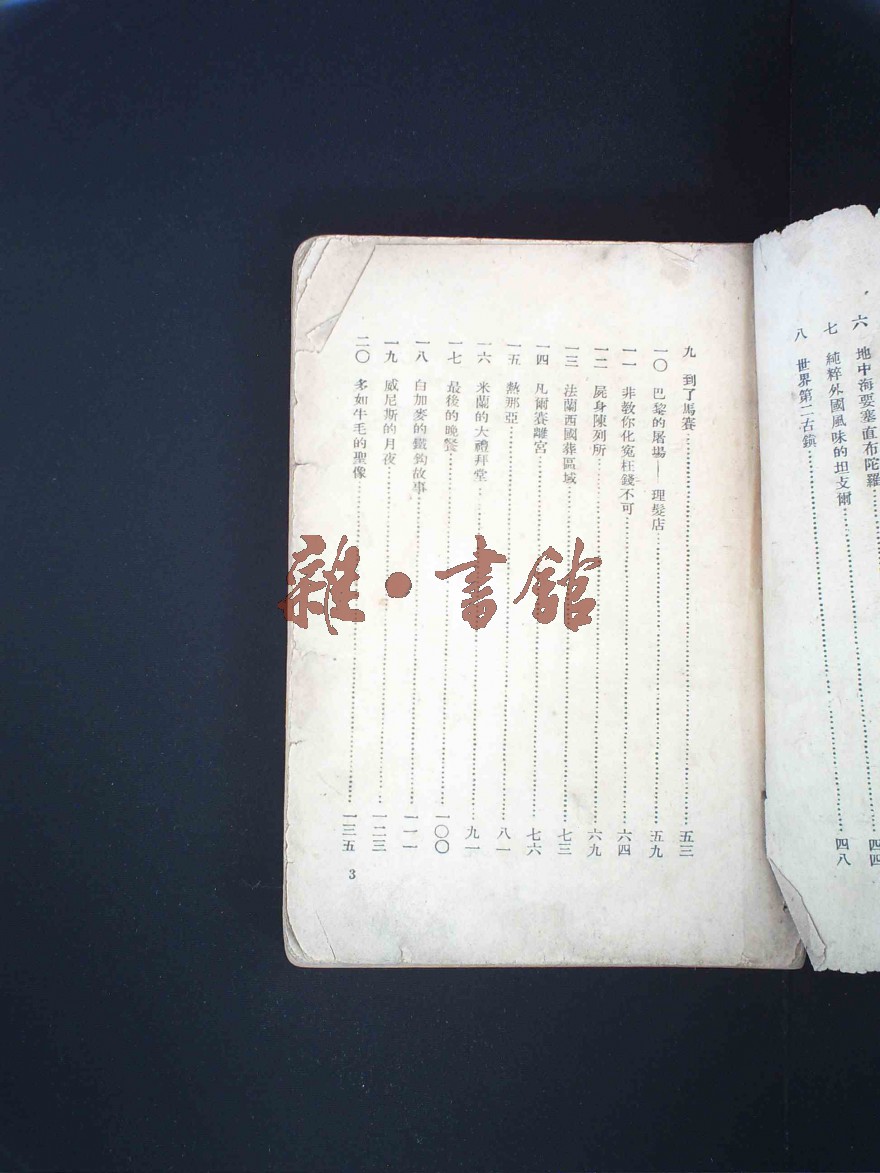 六 地中海要塞直布陀羅……四四
七 純粹外國風味的坦支爾……四八
八 世界第二古鎮
九 到了馬賽……五三
一〇 巴黎的屠場——理髮店……五九
一一 非教你化寃枉錢不可……六四
一二 屍身陳列所……六九
一三 法蘭西國葬區域……七三
一四 凡爾賽離宮……七六
一五 熱那亞……八一
一六 米蘭的大禮拜堂……九一
一七 最後的晚餐……一〇〇
一八 白加麥的鐵鈎故事……一一一
一九 威尼斯的月夜……一二三
二〇 多如牛毛的聖像……一三五
3
雜·書館